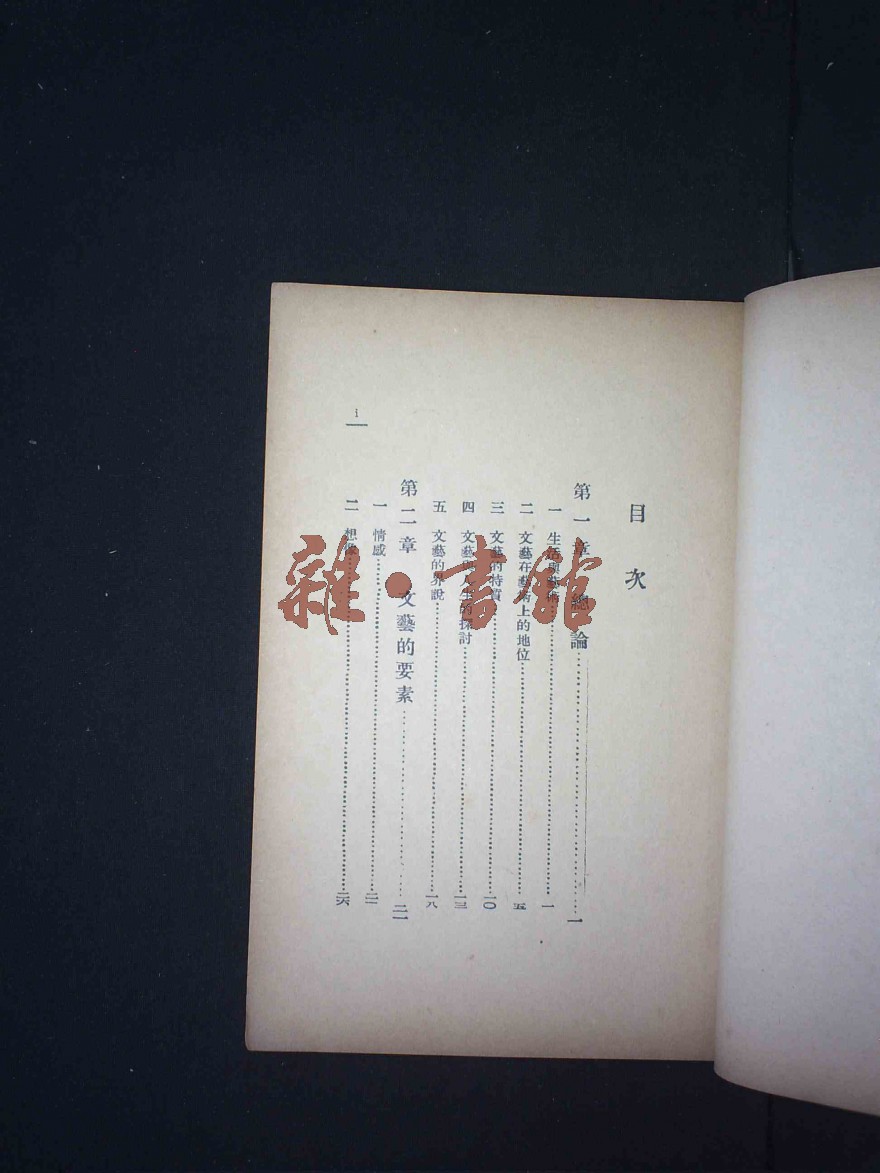 目次
第一章 總論……一
一 生活與藝術……一
二 文藝在藝術上的地位……五
三 文藝的特質……一〇
四 文藝與人生的探討……一三
五 文藝的界說……一八
第二章 文藝的要素……二一
一 情感……二一
二 想像……二六
i
雜·書館